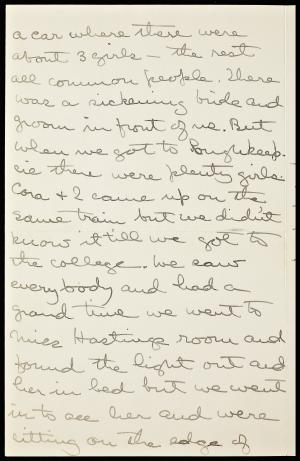 a car where there were
about 3 girls — the rest
all common people. There
was a sickening bride and
groom in front of us. But
when we got to Poughkeep-
sie there were plenty girls.
Cora + 2 came up on the
same train but we didn't
know it till we got to
the college. We saw
everybody and had a
grand time we went to
Miss Hastings room and
found the light out and
her in bed but we went
in to see her and were
sitting on the edge of